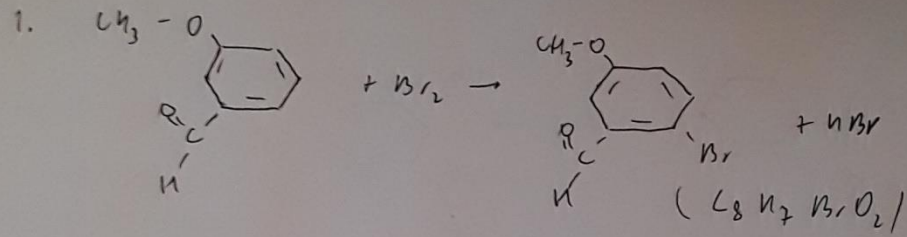 1. CH₃ - O
+ Br₂ →
O
C
H
CH₃-O
O
C
H
Br
+ HBr
( C₈ H₇ Br O₂ )